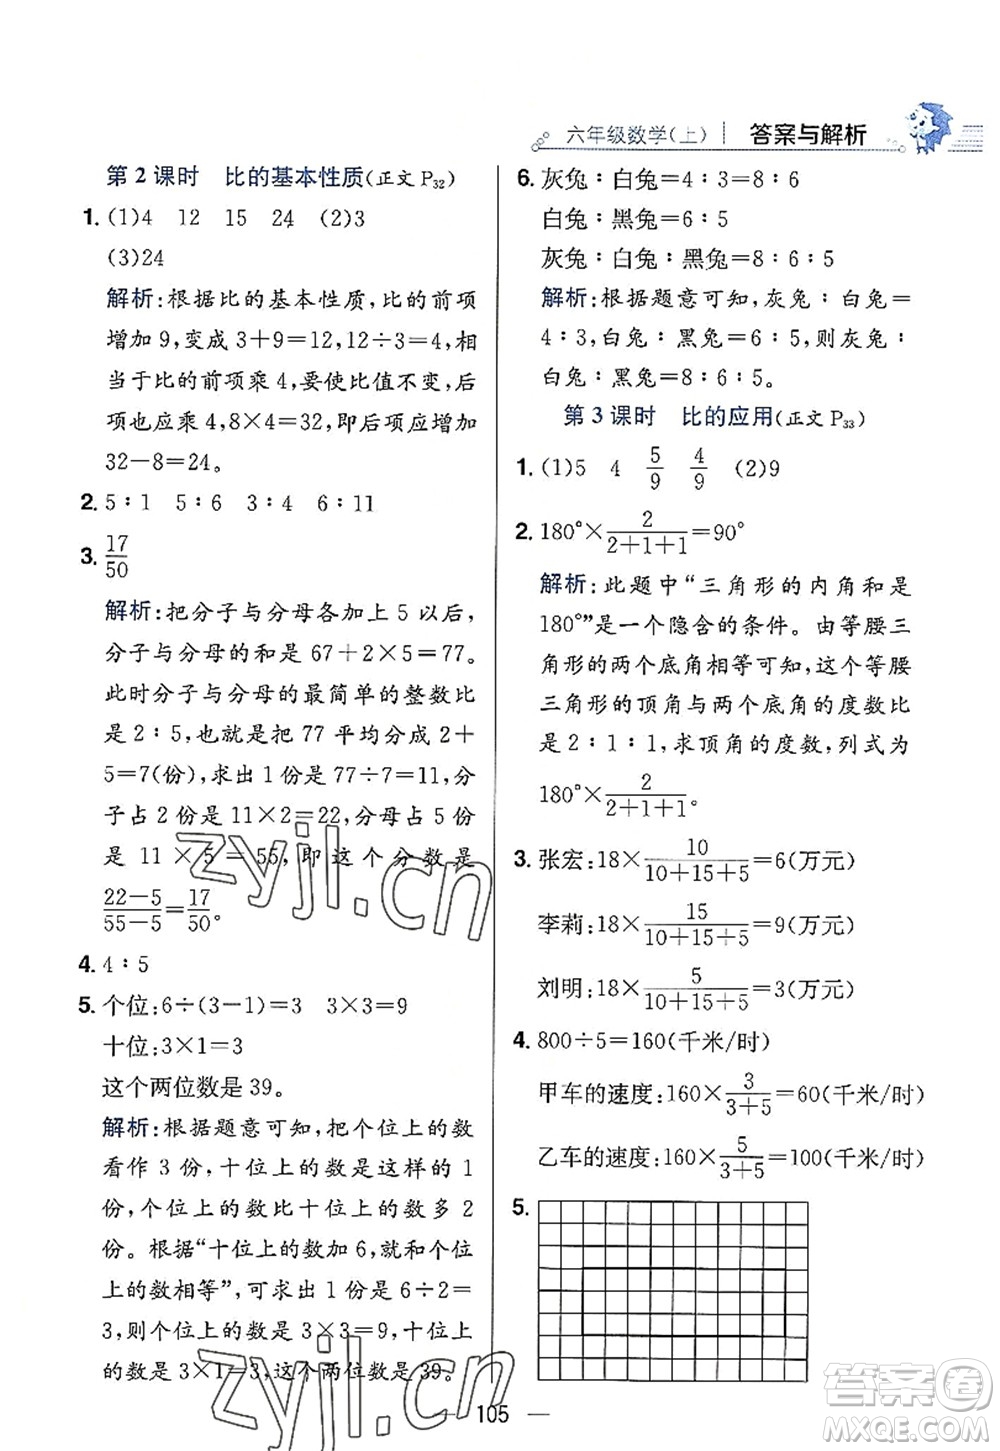 六年级数学(上) 答案与解析
第2课时 比的基本性质(正文 P₃₂)
1. (1)4 12 15 24 (2)3
(3)24
解析:根据比的基本性质,比的前项
增加9,变成3+9=12,12÷3=4,相
当于比的前项乘4,要使比值不变,后
项也应乘4,8×4=32,即后项应增加
32-8=24。
2. 5∶1 5∶6 3∶4 6∶11
3. 17/50
解析:把分子与分母各加上5以后,
分子与分母的和是67+2×5=77。
此时分子与分母的最简单的整数比
是2∶5,也就是把77平均分成2+
5=7(份),求出1份是77÷7=11,分
子占2份是11×2=22,分母占5份
是11×5=55,即这个分数是
22-5/55-5=17/50。
4. 4∶5
5. 个位:6÷(3-1)=3 3×3=9
十位:3×1=3
这个两位数是39。
解析:根据题意可知,把个位上的数
看作3份,十位上的数是这样的1
份,个位上的数比十位上的数多2
份。根据“十位上的数加6,就和个位
上的数相等”,可求出1份是6÷2=
3,则个位上的数是3×3=9,十位上
的数是3×1=3,这个两位数是39。
6. 灰兔∶白兔=4∶3=8∶6
白兔∶黑兔=6∶5
灰兔∶白兔∶黑兔=8∶6∶5
解析:根据题意可知,灰兔∶白兔=
4∶3=8∶6,白兔∶黑兔=6∶5,则灰兔∶
白兔∶黑兔=8∶6∶5。
第3课时 比的应用(正文 P₃₃)
1. (1)5 4 5/9 4/9 (2)9
2. 180°×2/2+1+1=90°
解析:此题中“三角形的内角和是
180°”是一个隐含的条件。由等腰三
角形的两个底角相等可知,这个等腰
三角形的顶角与两个底角的度数比
是2∶1∶1,求顶角的度数,列式为
180°×2/2+1+1。
3. 张宏:18×10/10+15+5=6(万元)
李莉:18×15/10+15+5=9(万元)
刘明:18×5/10+15+5=3(万元)
4. 800÷5=160(千米/时)
甲车的速度:160×3/3+5=60(千米/时)
乙车的速度:160×5/3+5=100(千米/时)
5.
105
zyjl.cn
zyjl.cn
答案圈
MXQE.COM